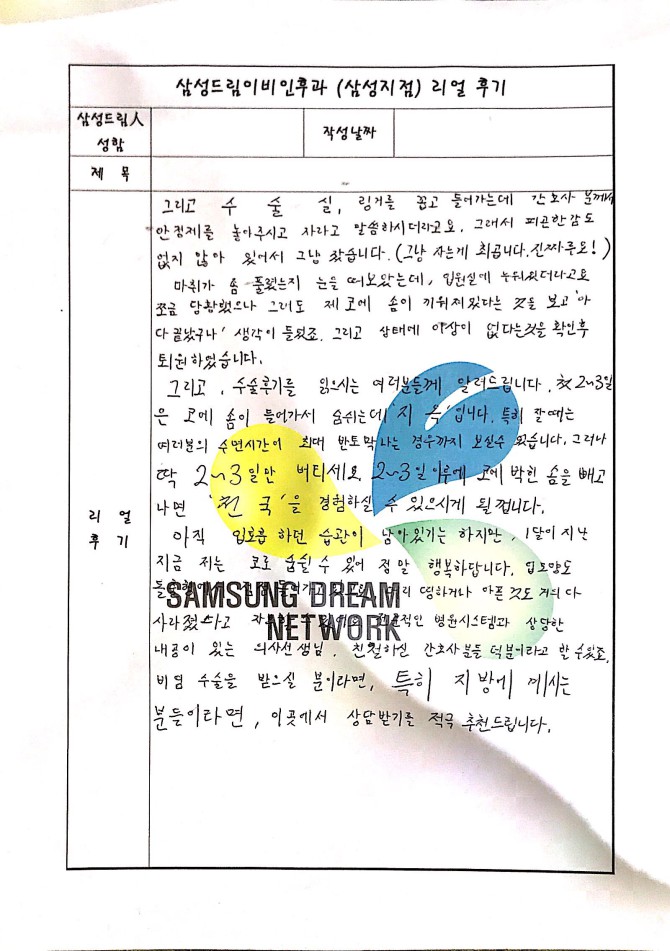 삼성드림이비인후과 (삼성지점) 리얼 후기
삼성드림人 성함
작성날짜
제 목
리 얼 후 기
그리고 수 술 실, 링거를 꼽고 들어가는데 간호사 분께서
안정제를 놓아주시고 자라고 말씀하시더라고요. 그래서 피곤한감도
없지 않아 있어서 그냥 잤습니다. (그냥 자는게 최곱니다. 진짜루요!)
마취가 좀 풀렸는지 눈을 떠보았는데, 입원실에 누워있더라고요
쪼금 당황했으나 그래도 제 코에 솜이 끼워져있다는 것을 보고 '아
다 끝났구나' 생각이 들었죠. 그리고 상태에 이상이 없다는것을 확인후
퇴원하였습니다.
그리고, 수술후기를 읽으시는 여러분들께 알려드립니다. 첫 2~3일
은 코에 솜이 들어가서 숨쉬는데 '지 옥' 입니다. 특히 잘때는
여러분의 수면시간이 최대 반토막 나는 경우까지 보실수 있습니다. 그러나
딱 2~3일만 버티세요. 2~3일 이후에 코에 박힌 솜을 빼고
나면 '천 국'을 경험하실 수 있으시게 될껍니다.
아직 입호흡 하던 습관이 남아있기는 하지만, 1달이 지난
지금 저는 코로 숨쉴 수 있어 정말 행복하답니다. 입모양도
들어가고 띵하거나 아픈것도 거의 다
사라졌다고 전문적인 병원시스템과 상당한
내공이 있는 의사선생님, 친절하신 간호사분들 덕분이라고 할 수있죠.
비염 수술을 받으실 분이라면, 특히 지방에 계시는
분들이라면, 이곳에서 상담받기를 적극 추천드립니다.
SAMSUNG DREAM
NETWORK